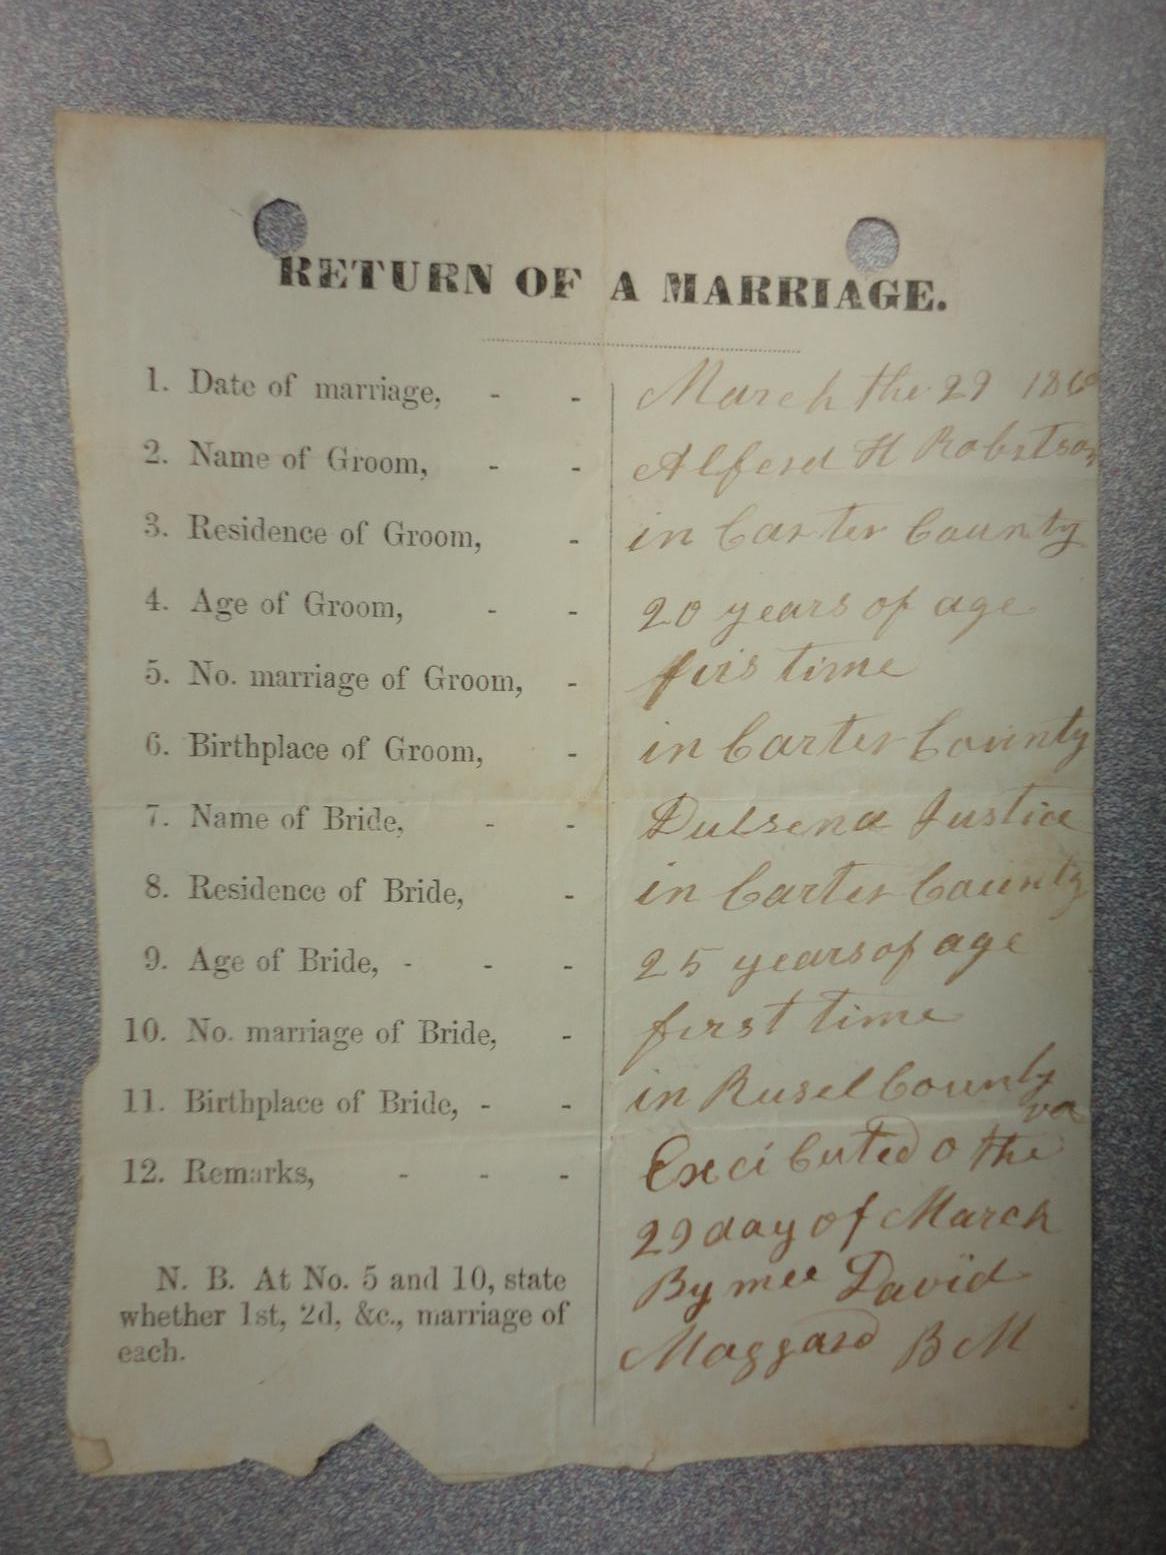 RETURN OF A MARRIAGE.
1. Date of marriage, - - March the 29 186
2. Name of Groom, - - Alferd H Robstson
3. Residence of Groom, - in Carter County
4. Age of Groom, - - 20 years of age
5. No. marriage of Groom, - firs time
6. Birthplace of Groom, - in Carter County
7. Name of Bride, - - Dulsena Justice
8. Residence of Bride, - in Carter County
9. Age of Bride, - - - 25 years of age
10. No. marriage of Bride, - first time
11. Birthplace of Bride, - - in Rusel County
va
12. Remarks, - - - Excicuted o the
29 day of March
N. B. At No. 5 and 10, state By mee David
whether 1st, 2d, &c., marriage of Maggard B M
each.